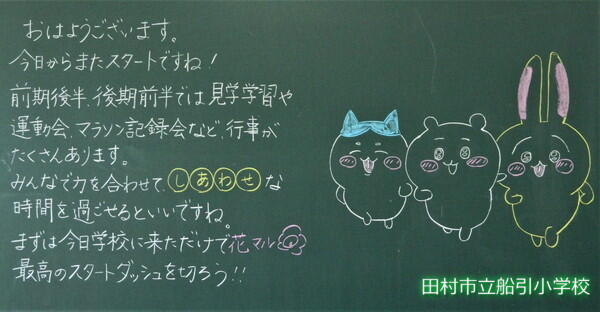 おはようございます。
今日からまたスタートですね！
前期後半、後期前半では見学学習や
運動会、マラソン記録会など、行事が
たくさんあります。
みんなで力を合わせて、しあわせな
時間を過ごせるといいですね。
まずは今日学校に来ただけで花マル
最高のスタートダッシュを切ろう!!
田村市立船引小学校